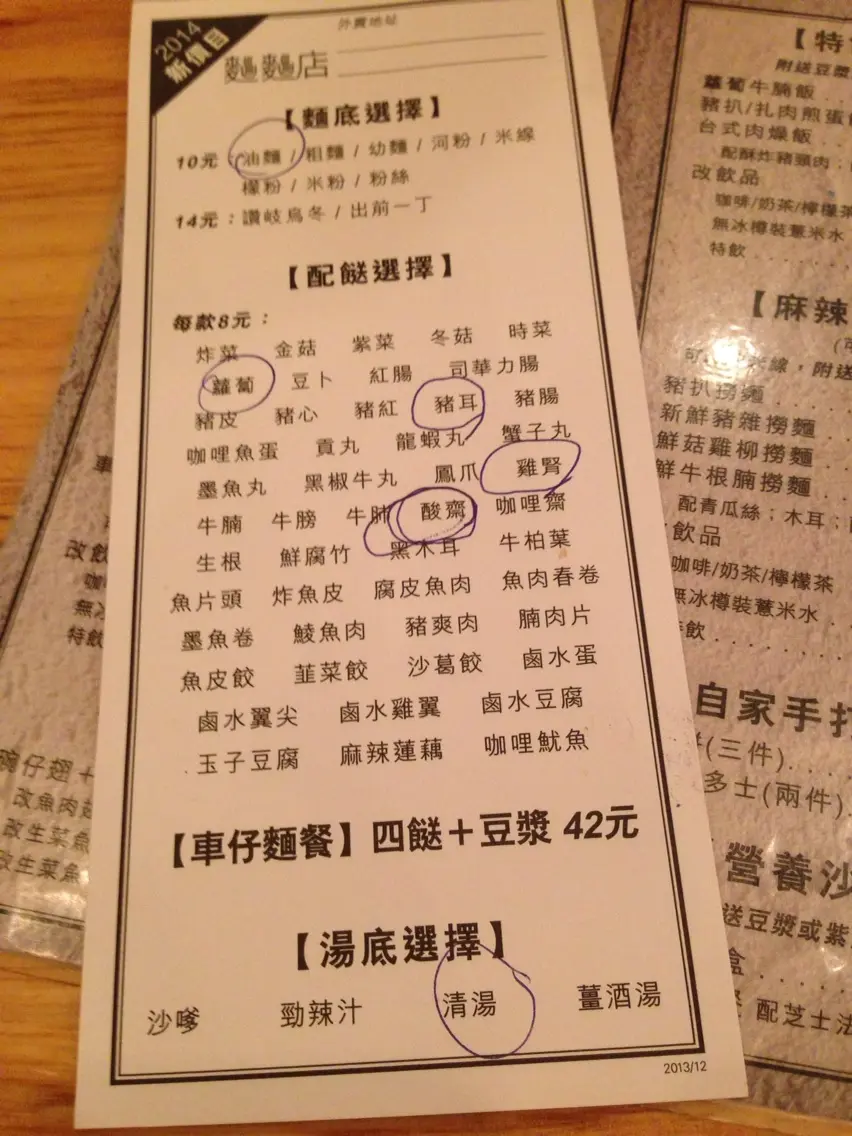 2014
新價目
外賣地址
麵麵店
【麵底選擇】
10元：油麵 / 粗麵 / 幼麵 / 河粉 / 米線
檬粉 / 米粉 / 粉絲
14元：讚岐烏冬 / 出前一丁
【配餸選擇】
每款8元：
炸菜 金菇 紫菜 冬菇 時菜
蘿蔔 豆卜 紅腸 司華力腸
豬皮 豬心 豬紅 豬耳 豬腸
咖哩魚蛋 貢丸 龍蝦丸 蟹子丸
墨魚丸 黑椒牛丸 鳳爪 雞腎
牛腩 牛膀 牛肺 酸齋 咖哩齋
生根 鮮腐竹 黑木耳 牛柏葉
魚片頭 炸魚皮 腐皮魚肉 魚肉春卷
墨魚卷 鯪魚肉 豬爽肉 腩肉片
魚皮餃 韮菜餃 沙葛餃 鹵水蛋
鹵水翼尖 鹵水雞翼 鹵水豆腐
玉子豆腐 麻辣蓮藕 咖哩魷魚
【車仔麵餐】四餸＋豆漿 42元
【湯底選擇】
沙嗲 勁辣汁 清湯 薑酒湯
2013/12
【特
附送豆漿
蘿蔔牛腩飯
豬扒/扎肉煎蛋
台式肉燥飯
配酥炸豬頸肉；
改飲品
咖啡/奶茶/檸檬茶
無冰樽裝薏米水
特飲
【麻辣
米線，附送
豬扒撈麵
新鮮豬雜撈麵
鮮菇雞柳撈麵
鮮牛根腩撈麵
配青瓜絲；木耳；
飲品
咖啡/奶茶/檸檬茶
無冰樽裝薏米水
飲
自家手打
(三件)
多士(兩件)
營養沙
送豆漿或紫
盒
配芝士法
改飲
咖
無冰
特飲
碗仔翅＋
改魚肉
改生菜魚
改生菜魚